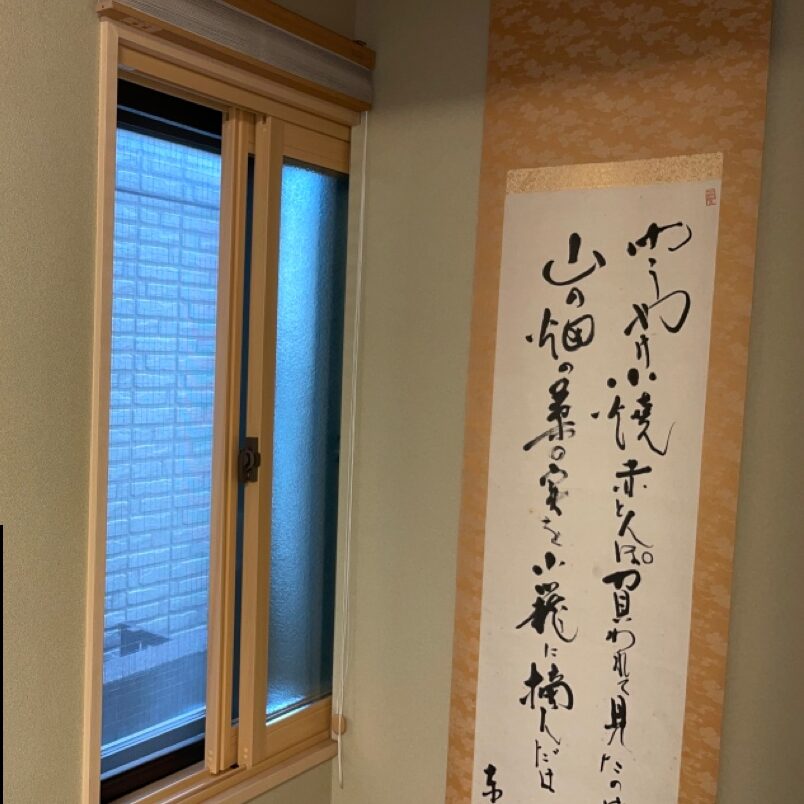 ゆうやけ小焼赤とんぼ負われて見たのは
山の畑の桑の実を小籠に摘んだは
ま